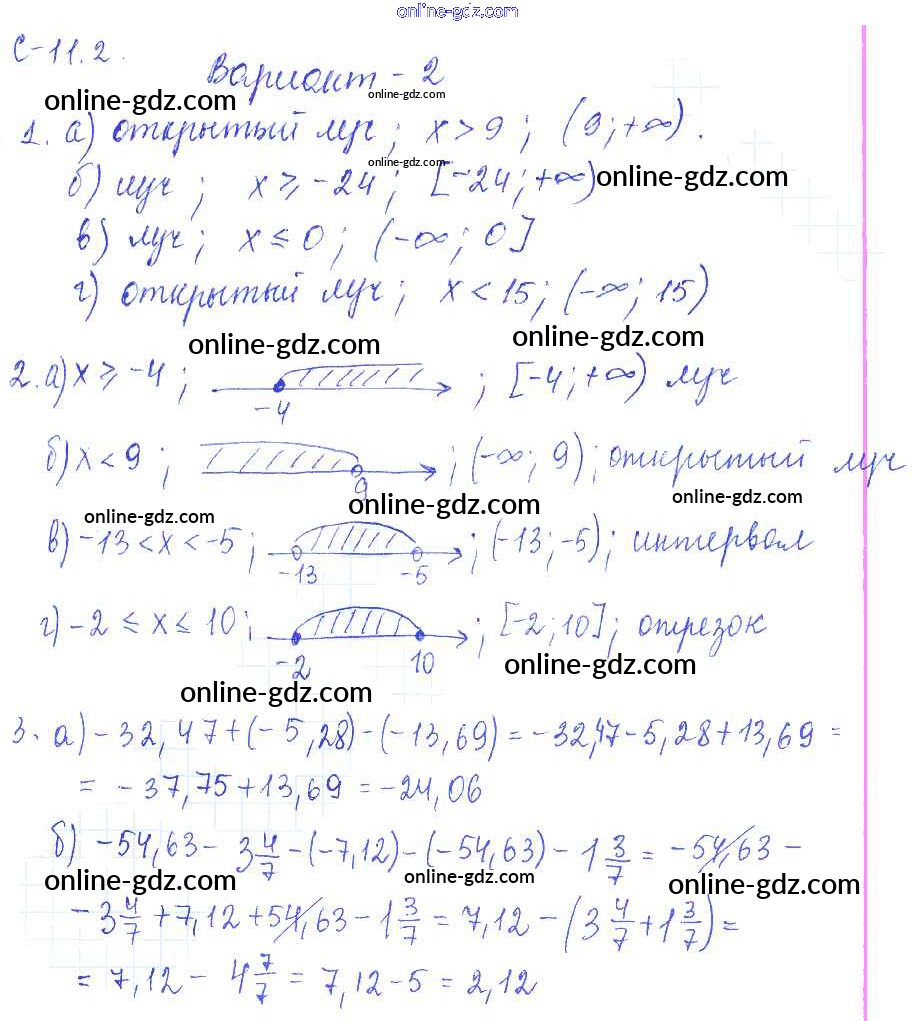 online-gdz.com
С-11.2.
Вариант - 2
online-gdz.com
online-gdz.com
1. а) открытый луч; x > 9; (9; +∞).
online-gdz.com
б) луч; x ≥ -24; [-24; +∞) online-gdz.com
в) луч; x ≤ 0; (-∞; 0]
г) открытый луч; x < 15; (-∞; 15)
online-gdz.com
online-gdz.com
2. а) x ≥ -4; -4; [-4; +∞) луч
б) x < 9; 9; (-∞; 9); открытый луч
online-gdz.com
online-gdz.com
online-gdz.com
в) -13 < x < -5; -13 -5; (-13; -5); интервал
г) -2 ≤ x ≤ 10; -2 10; [-2; 10]; отрезок
online-gdz.com
online-gdz.com
3. а) -32,47 + (-5,28) - (-13,69) = -32,47 - 5,28 + 13,69 =
= -37,75 + 13,69 = -24,06
б) -54,63 - 3 4/7 - (-7,12) - (-54,63) - 1 3/7 = -54,63 -
online-gdz.com
online-gdz.com
online-gdz.com
- 3 4/7 + 7,12 + 54,63 - 1 3/7 = 7,12 - (3 4/7 + 1 3/7) =
= 7,12 - 4 7/7 = 7,12 - 5 = 2,12